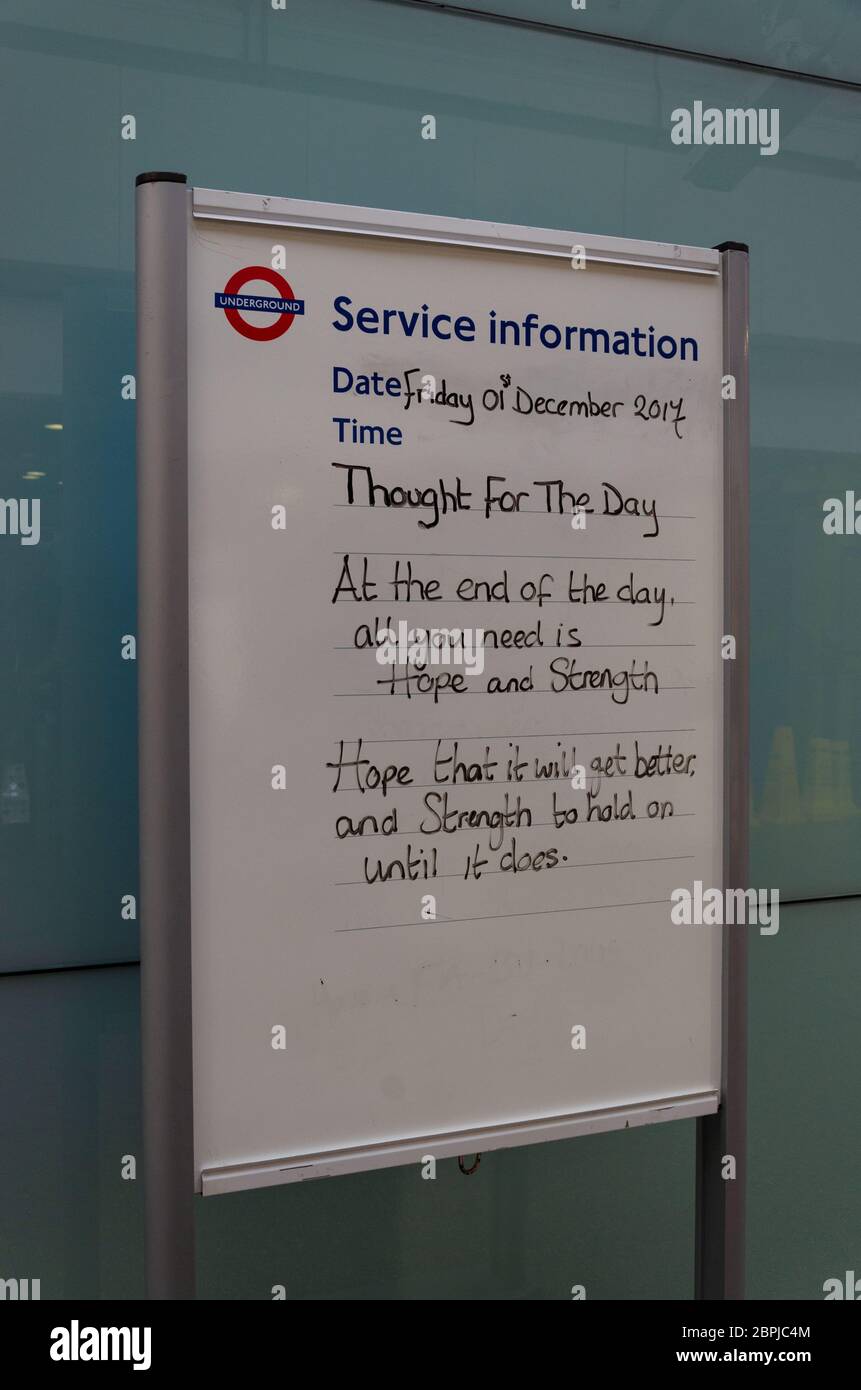 UNDERGROUND
Service information
Date Friday 01st December 2017
Time
Thought For The Day
At the end of the day,
all you need is
Hope and Strength
Hope that it will get better,
and Strength to hold on
until it does.
alamy
Image ID: 2BPJC4M
www.alamy.com